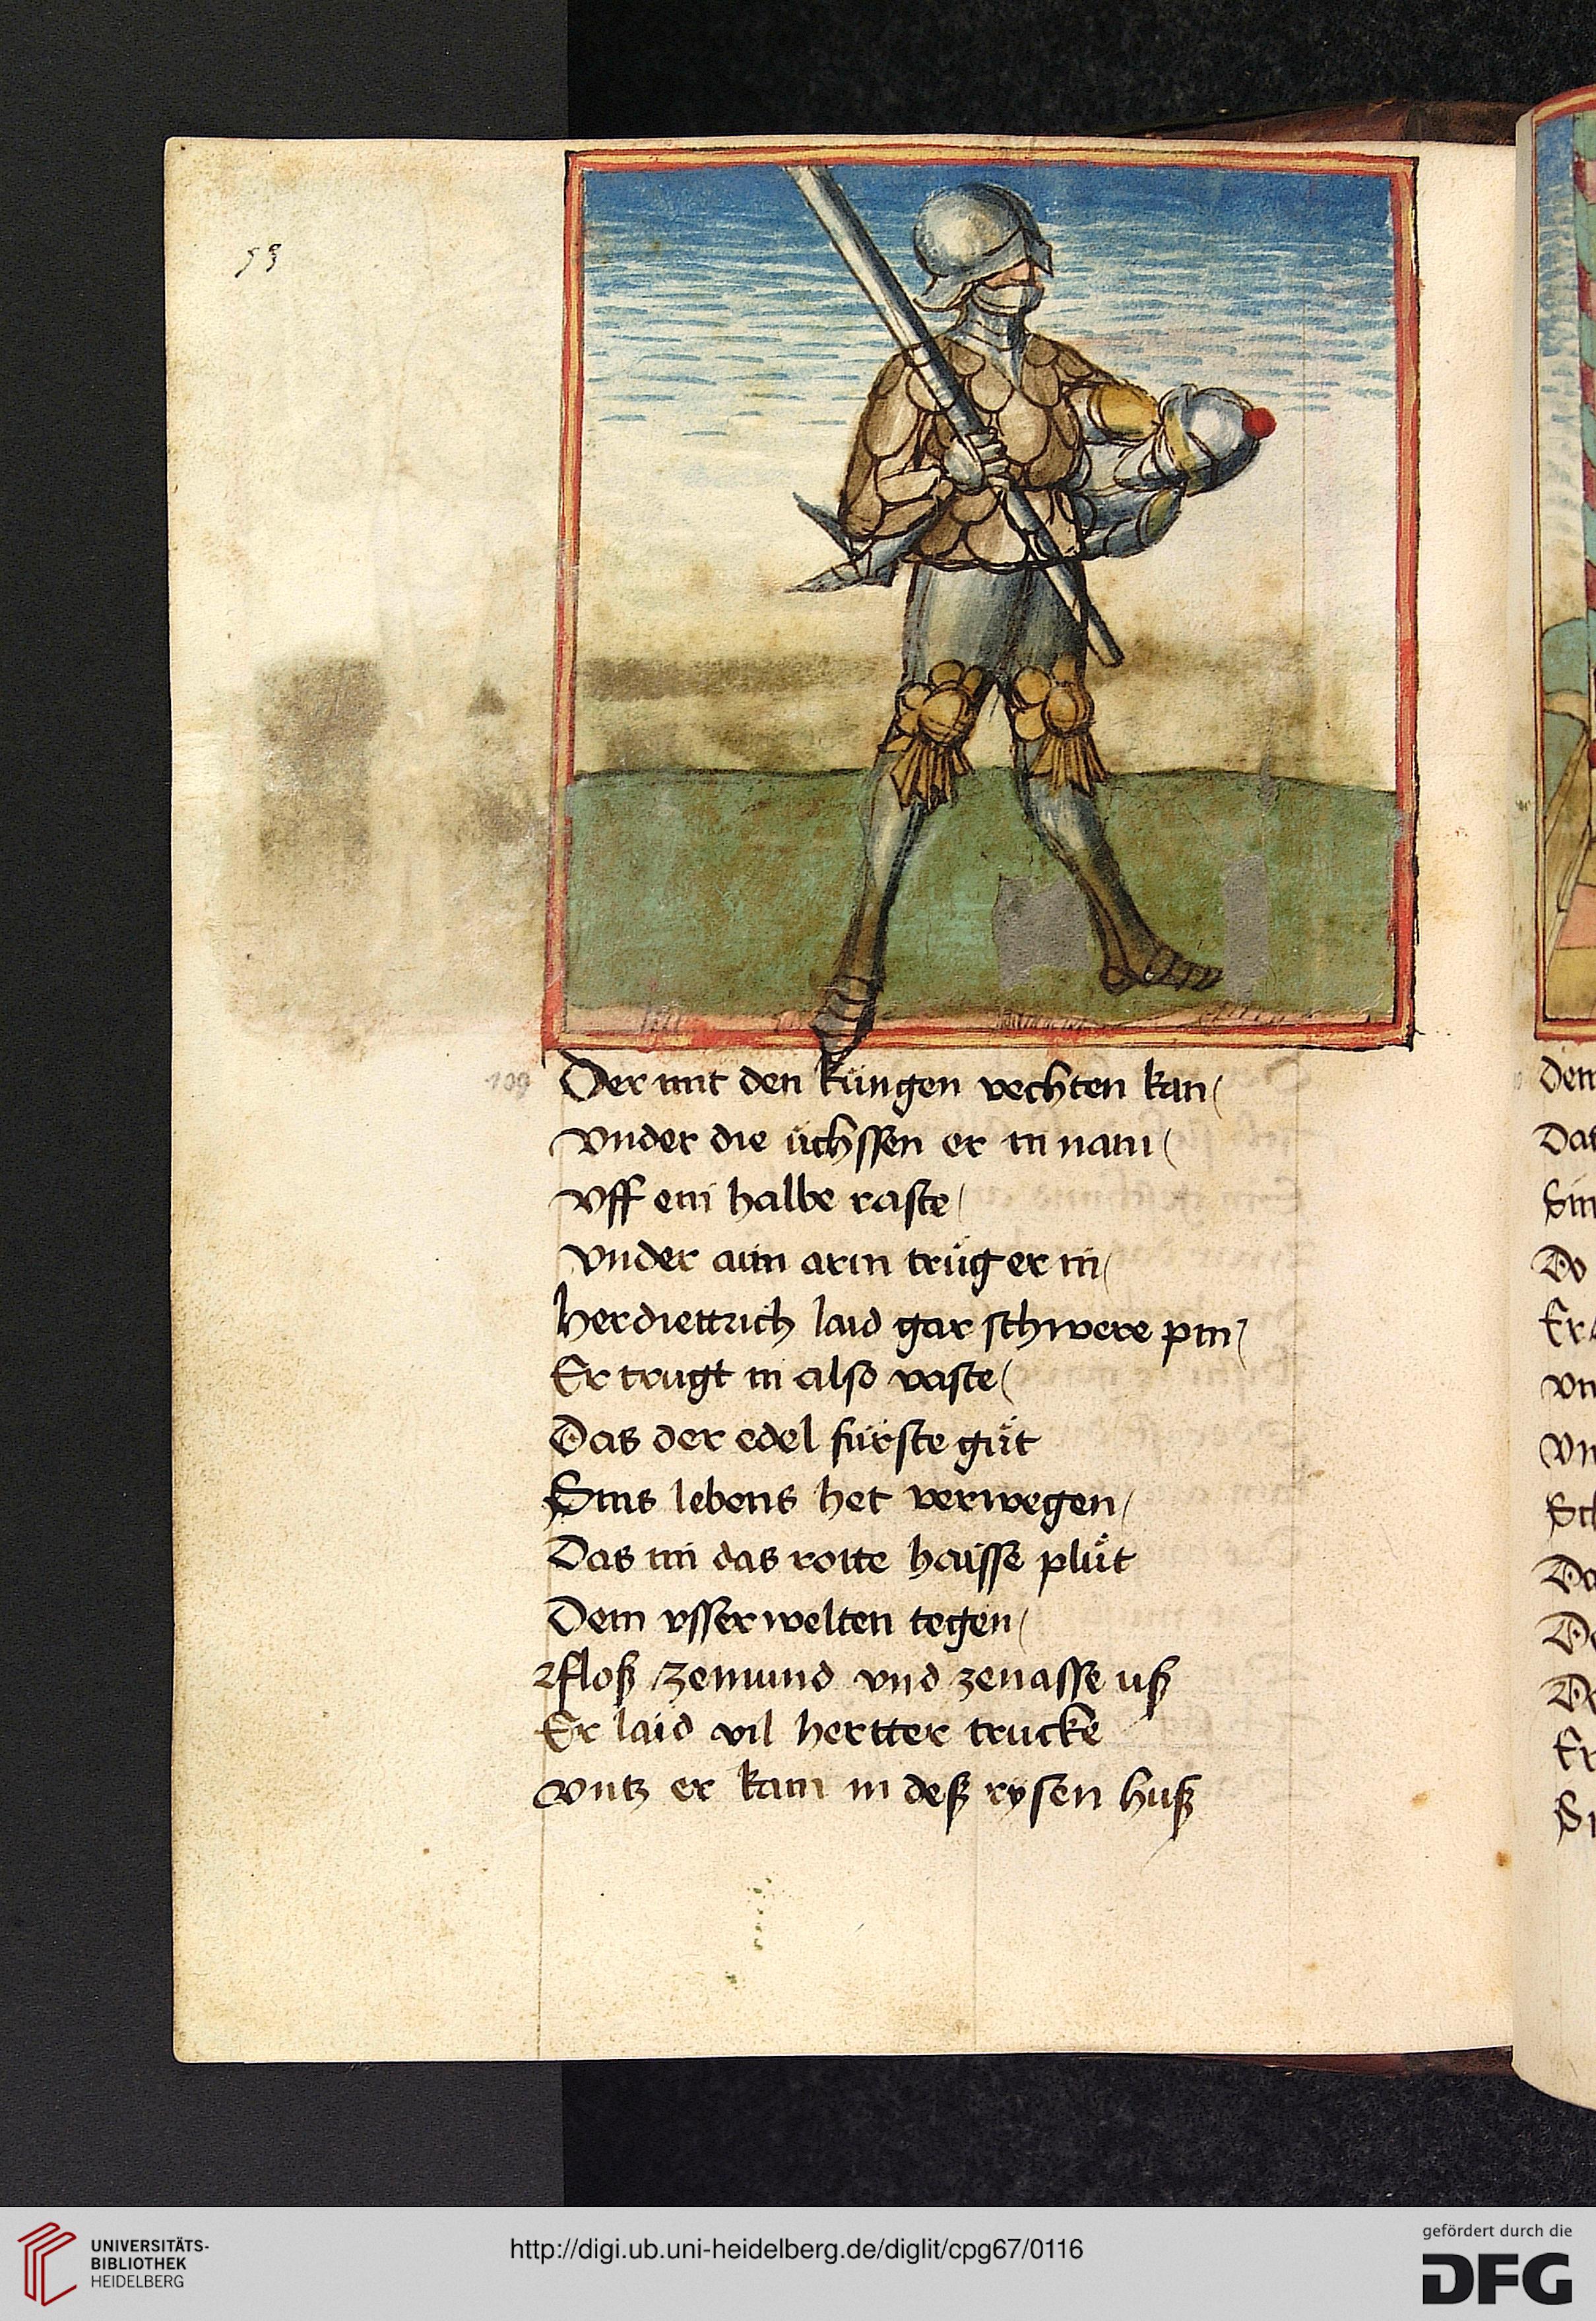 53
109
Der mit den küngen vechten kan
Vnder die üchssen er in nam
Vff ein halbe raste
Vnder aim arm trüg er in
Her diettrich laid gar schwere pin
Er trugt in also vaste
Das der edel fürste gůt
Sins lebens het verwegen
Das im das rotte haisse plůt
Dem vsserwelten tegen
Floß ze mund vnd ze nasse uß
Er laid vil hertter trucke
Vntz er kam in deß rysen huß
Dem
Do
Er
UNIVERSITÄTS-
BIBLIOTHEK
HEIDELBERG
http://digi.ub.uni-heidelberg.de/diglit/cpg67/0116
gefördert durch die
DFG